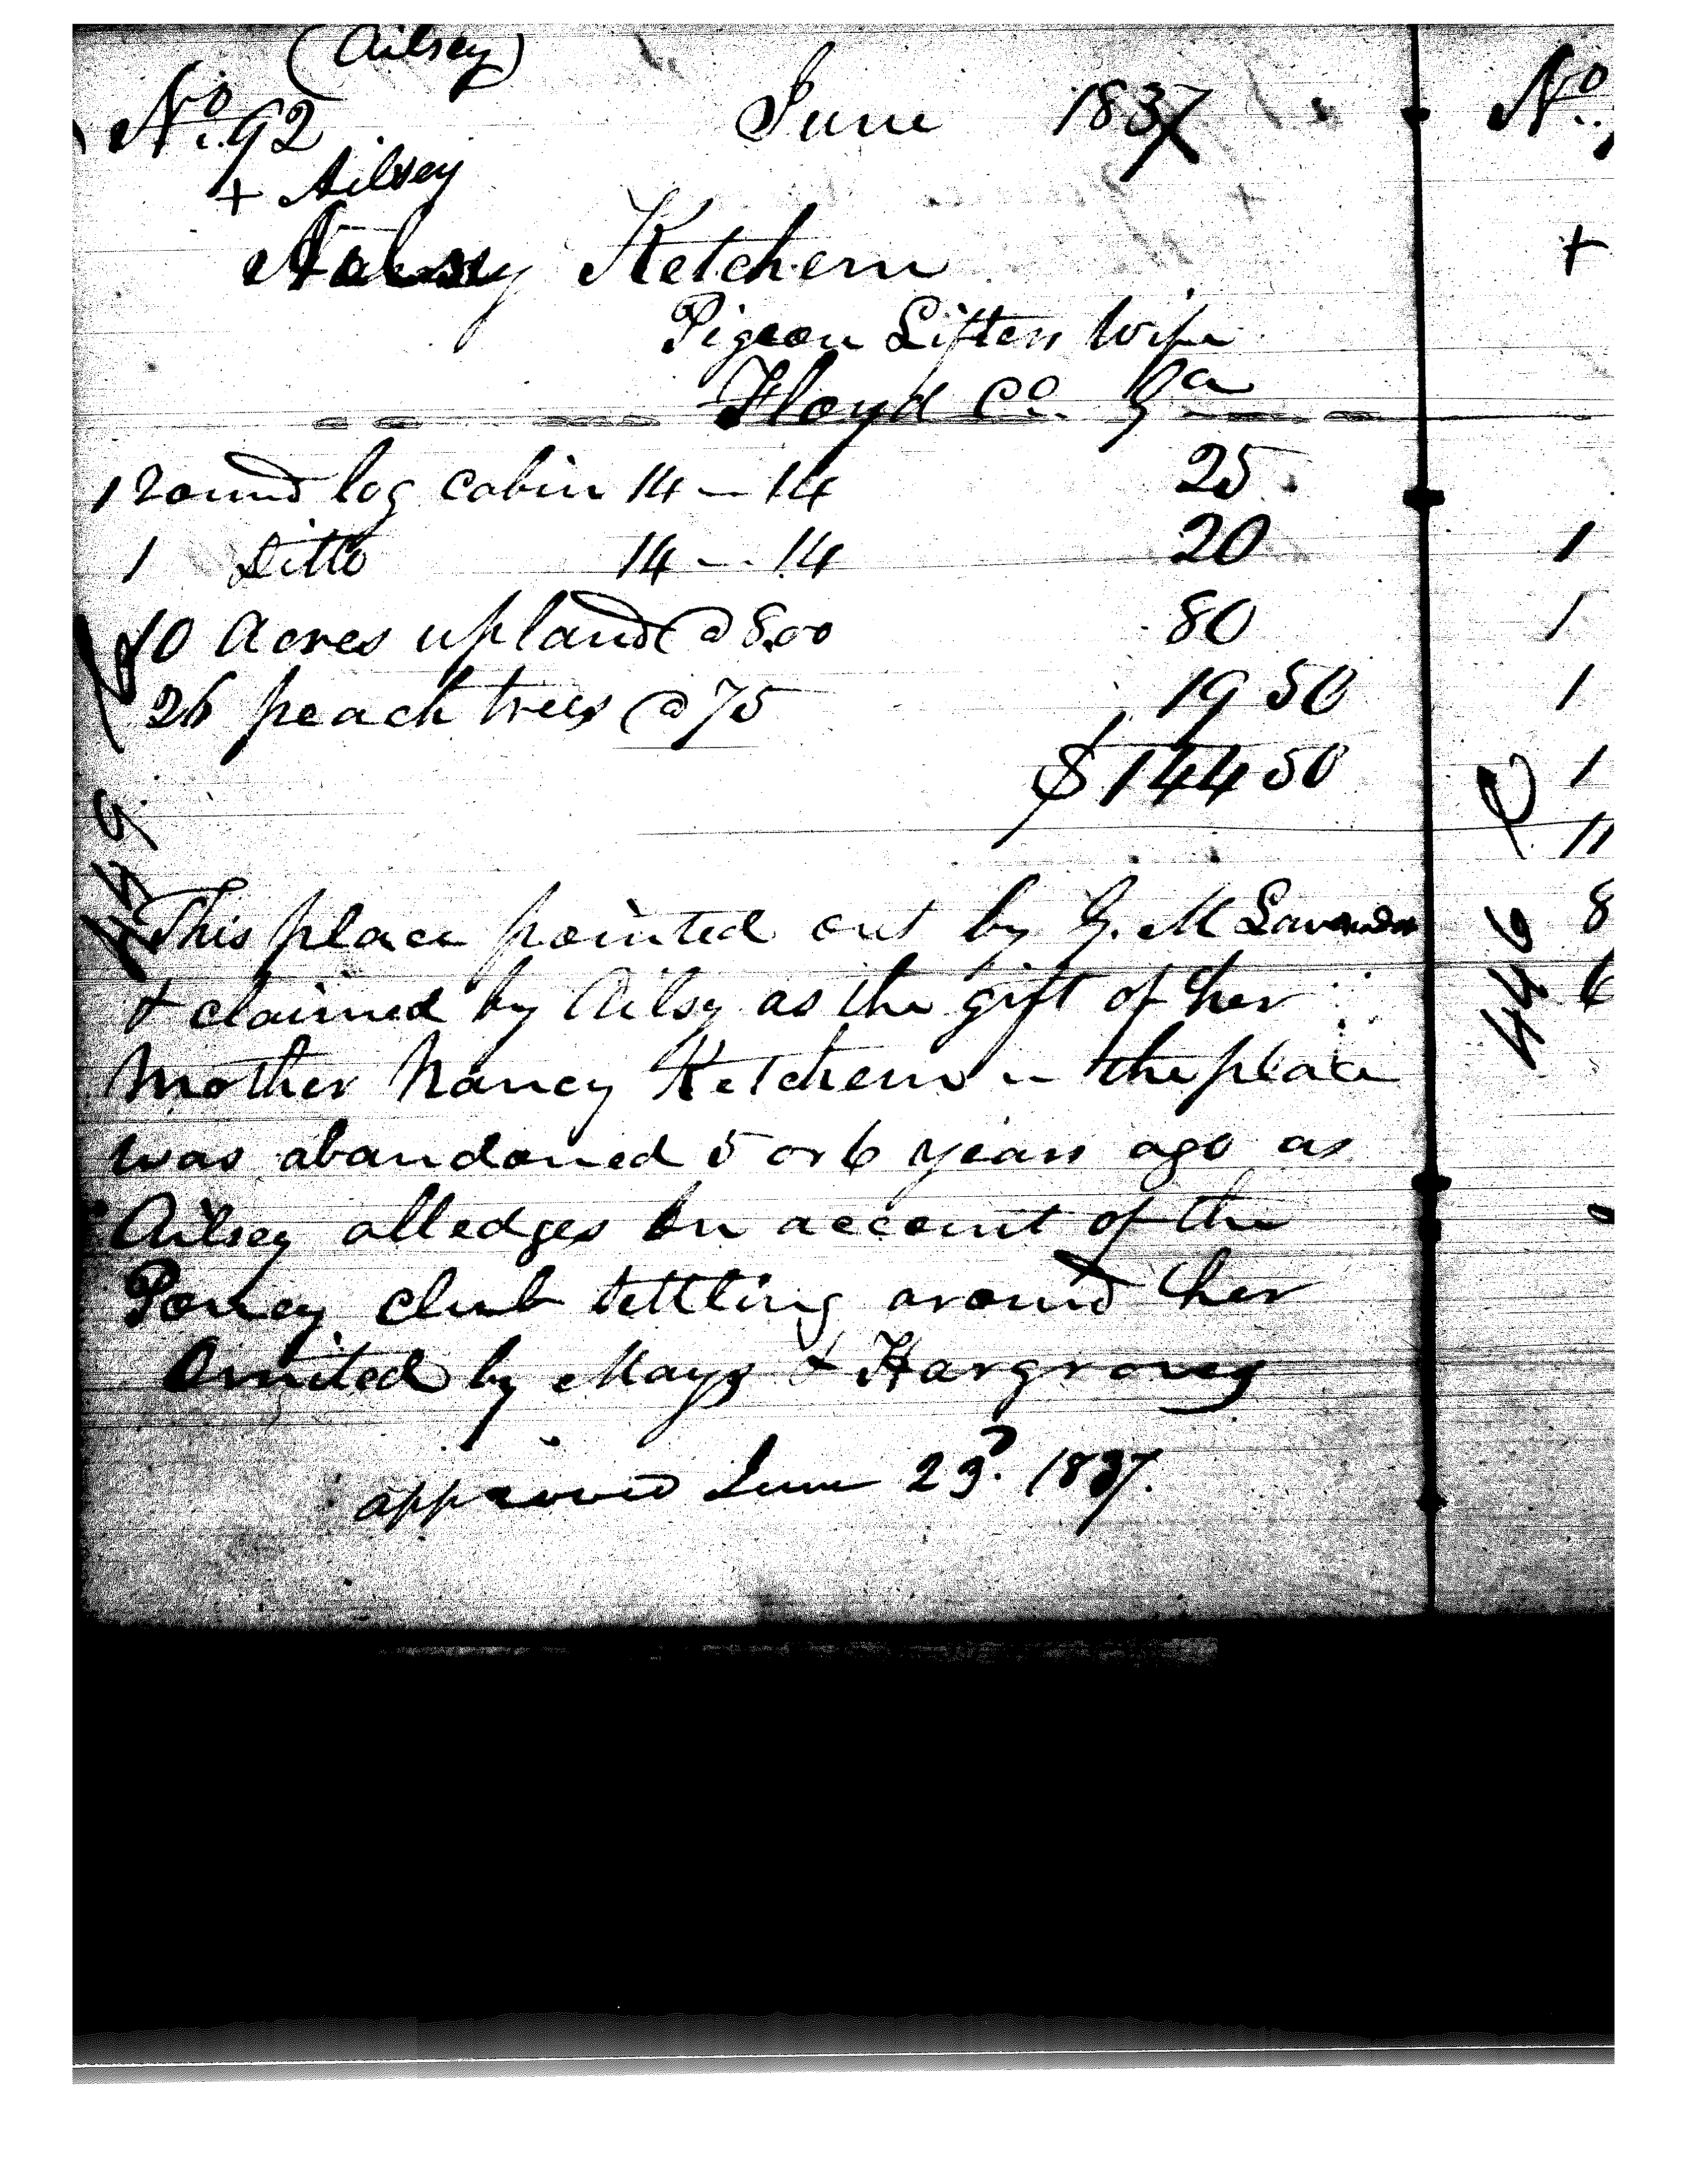 (Ailsey)
No. 92 June 1837
+ Ailsey
Ketchem
Pigeon Lifters Wife
Floyd Co. Ga
1 round log cabin 14 — 14 25
1 Ditto 14 — 14 20
10 Acres upland @ 8.00 80
26 peach trees @ 75 19 50
$144 50
459
This place pointed out by G. M Lavender
& claimed by Ailsy as the gift of her
Mother Nancy Ketchem — the place
was abandoned 5 or 6 years ago as
Ailsey alledges on account of the
Poney club settling around her
Omited by Mays & Hargroves
approved June 23d. 1837.
No.
+
1
1
1
1
11
8
6
446